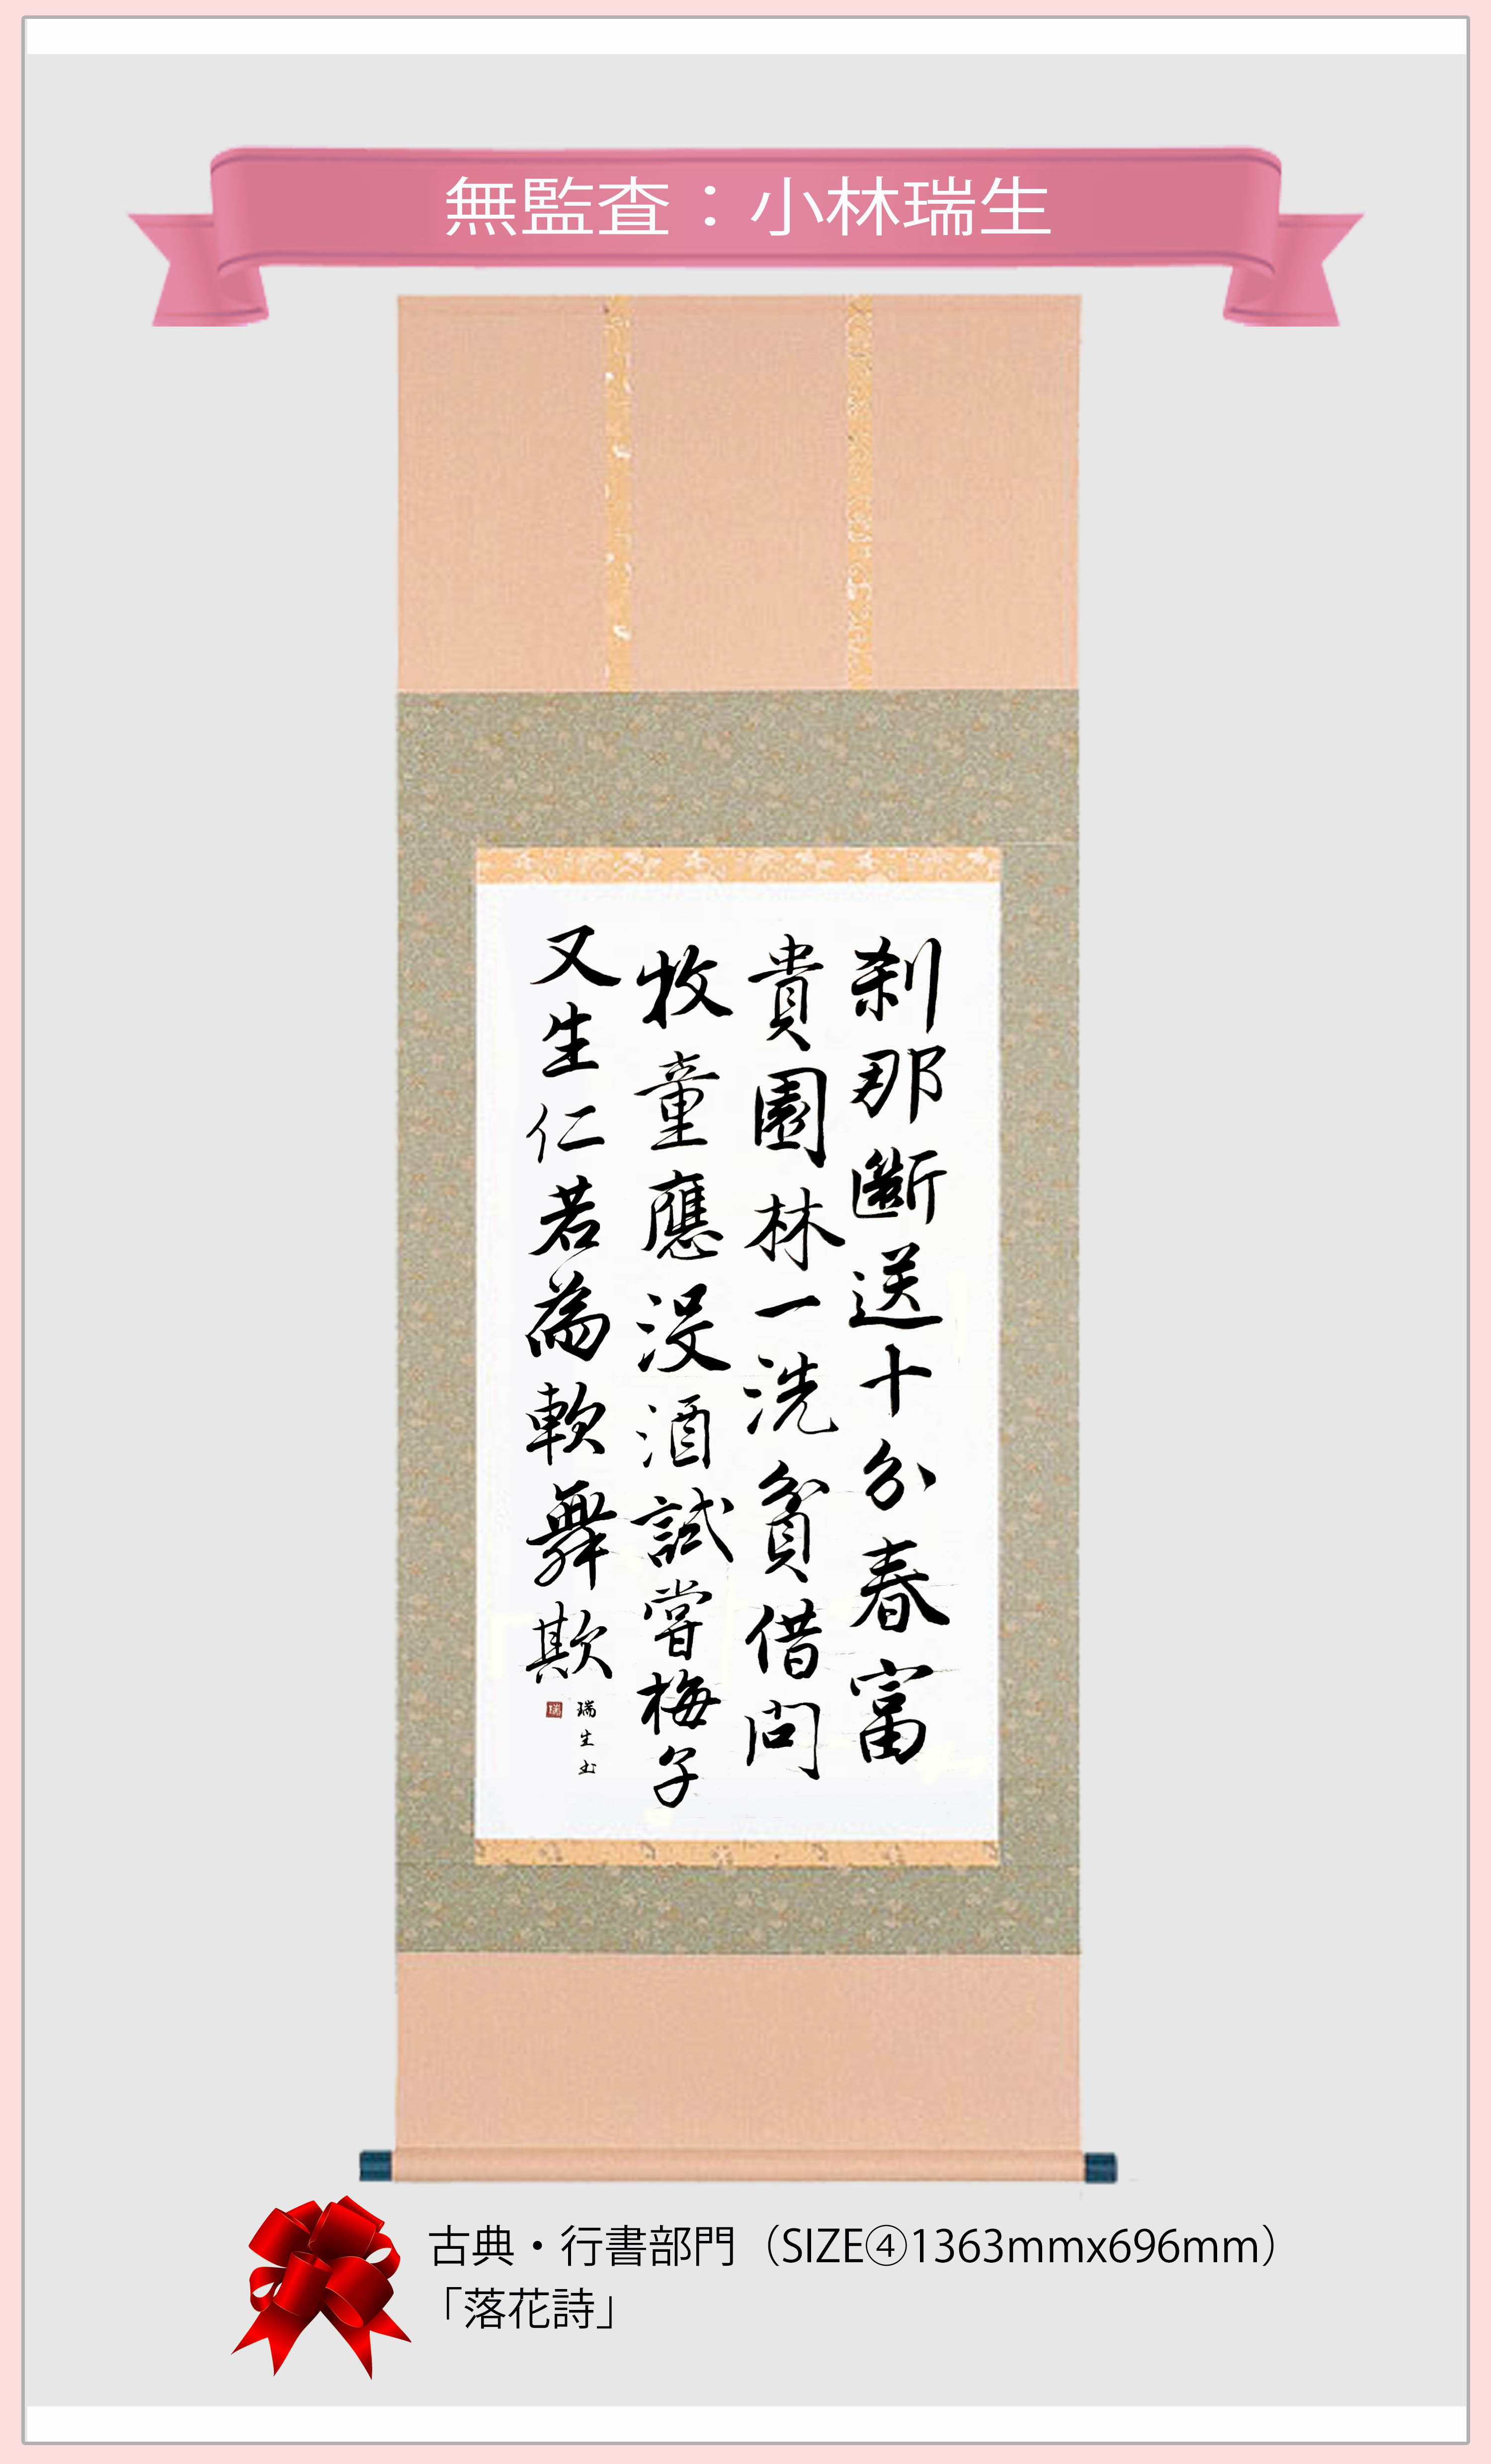 無監査：小林瑞生
刹那断送十分春富
貴園林一洗貧借問
牧童應没酒試嘗梅子
又生仁若為軟舞欺
瑞生書
古典・行書部門（SIZE④1363mmx696mm）
「落花詩」